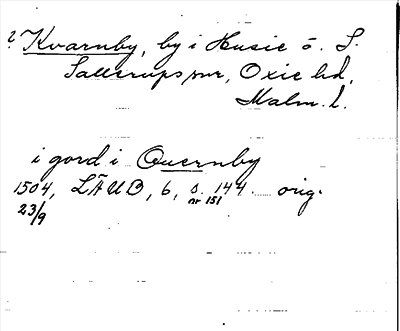 ? Kvarnby, by i Husie o. S.
Sallerups snr, Oxie hd,
Malm. l.
i gord i Quernby
1504, LÄUB, 6, s. 144 orig.
23/9 nr 151